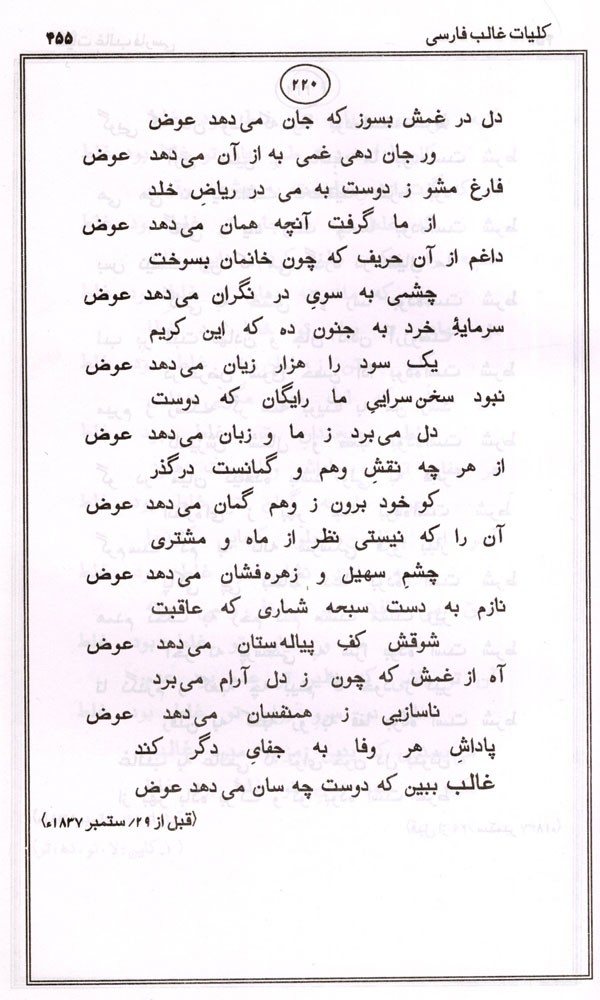 کلیات غالب فارسی ۴۵۵
۲۲۰
دل در غمش بسوز که جان می‌دهد عوض
ور جان دهی غمی به از آن می‌دهد عوض
فارغ مشو ز دوست به می در ریاضِ خلد
از ما گرفت آنچه همان می‌دهد عوض
داغم از آن حریف که چون خانمان بسوخت
چشمی به سویِ در نگران می‌دهد عوض
سرمایهٔ خرد به جنون ده که این کریم
یک سود را هزار زیان می‌دهد عوض
نبود سخن‌سراییِ ما رایگان که دوست
دل می‌برد ز ما و زبان می‌دهد عوض
از هر چه نقشِ وهم و گمانست درگذر
کو خود برون ز وهم گمان می‌دهد عوض
آن را که نیستی نظر از ماه و مشتری
چشمِ سهیل و زهره‌فشان می‌دهد عوض
نازم به دست سبحه شماری که عاقبت
شوقش کفِ پیاله‌ستان می‌دهد عوض
آه از غمش که چون ز دل آرام می‌برد
ناسازیی ز همنفسان می‌دهد عوض
پاداشِ هر وفا به جفایِ دگر کند
غالب ببین که دوست چه سان می‌دهد عوض
(قبل از ۲۹/ ستمبر ۱۸۳۷ء)